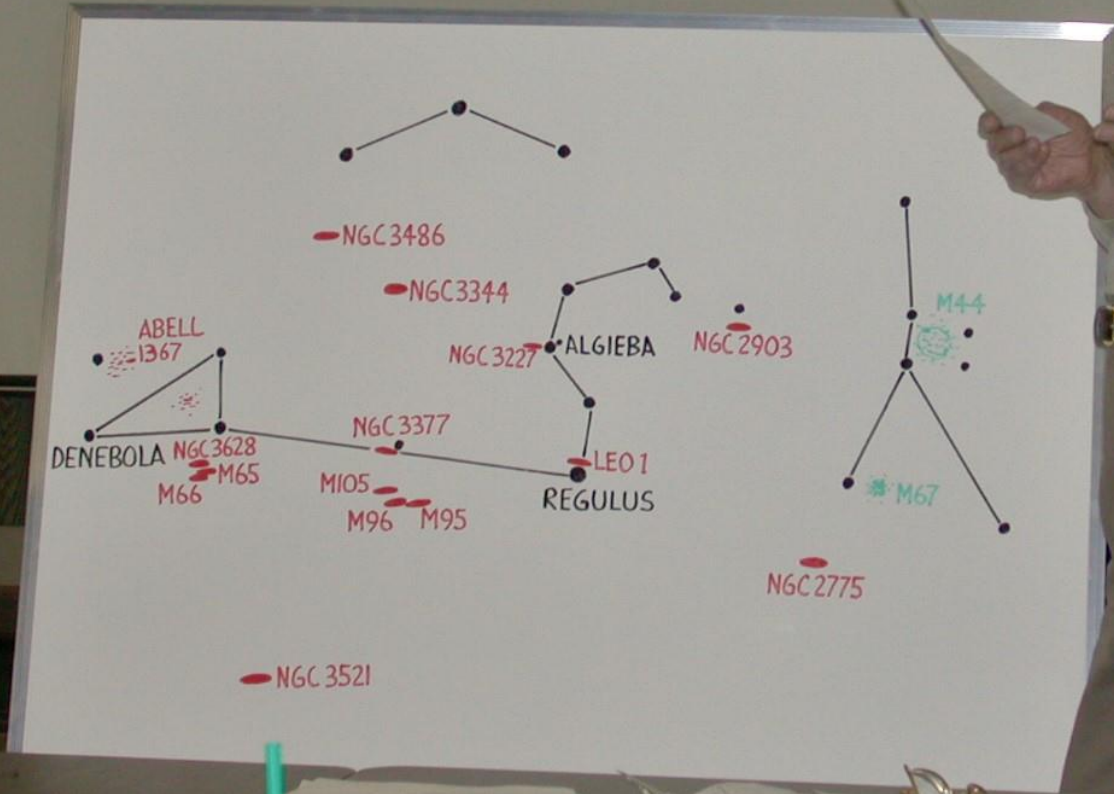 NGC3486
NGC3344
M44
ABELL
1367
NGC3227
ALGIEBA
NGC2903
NGC3377
DENEBOLA
NGC3628
M65
M66
LEO1
REGULUS
M105
M96
M95
M67
NGC2775
NGC3521